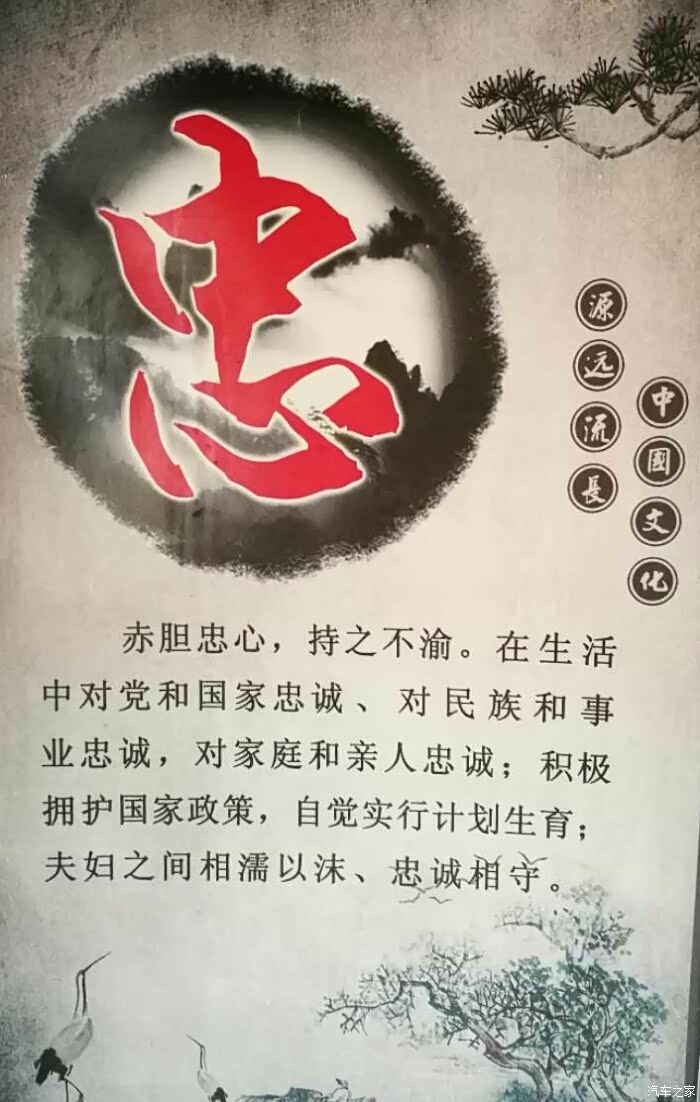 忠
源远流長
中國文化
赤胆忠心，持之不渝。在生活
中对党和国家忠诚、对民族和事
业忠诚，对家庭和亲人忠诚；积极
拥护国家政策，自觉实行计划生育；
夫妇之间相濡以沫、忠诚相守。
汽车之家